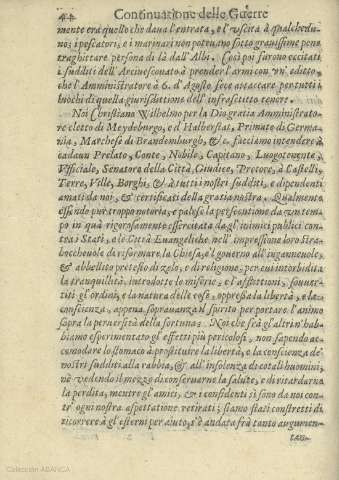 44 Continuatione delle Guerre
mente era quello che daua l'entrata, e l'vscita à qualchedu-
no; i pescatori, e i marinari non poteuano sotto grauissime pene
traghittare persona di là dall'Albi. Così poi furono eccitati
i sudditi dell'Arciuescouato à prender l'armi con vn' editto,
che l'Amministratore à 6. d'Agosto fece attaccare per tutti i
luochi di quella giurisditione dell'infrascritto tenore.
Noi Christiano Wilhelmo per la Dio gratia Amministrato-
re eletto di Meydeburgo, e d'Halberstat, Primate di Germa-
nia, Marchese di Brandemburgh, &c. facciamo intendere à
cadaun Prelato, Conte, Nobile, Capitano, Luogotenente,
Vfficiale, Senatore della Città, Giudice, Pretore, à Castelli,
Terre, Ville, Borghi, & à tutti i nostri sudditi, e dipendenti
amati da noi, & certificati della gratia nostra. Qualmente
essendo pur troppo notoria, e palese la persecutione da vn tem-
po in quà rigorosamente essercitata da gl'inimici publici con-
tra i Stati, e le Città Euangeliche nell'impressione loro stra-
bocheuole di riformare la Chiesa, e'l gouerno all'ingannevole,
& abbellito pretesto di zelo, e di religione, per cui intorbidita
la tranquillità, introdotte le miserie, e l'afflittioni, souuer-
titi gl'ordini, e la natura delle cose, oppressa la libertà, e la
conscienza, appena soprauanza il spirito per portare l'animo
sopra la peruersità della fortuna. Noi che frà gl'altri n'hab-
biamo esperimentato gl'effetti più pericolosi, non sapendo ac-
comodare lo stomaco à prostituire la libertà, e la conscienza de'
nostri sudditi alla rabbia, & all'insolenza di cotali huomini,
nè vedendo il mezzo di conseruarne la salute, e di ritardarne
la perdita, mentre gl'amici, & i confidenti si sono da noi con-
tr' ogni nostra aspettatione retirati; siamo stati constretti di
ricorrere à gl'esterni per aiuto, s'è andata frà tanto augumen-
Colección ABANCA